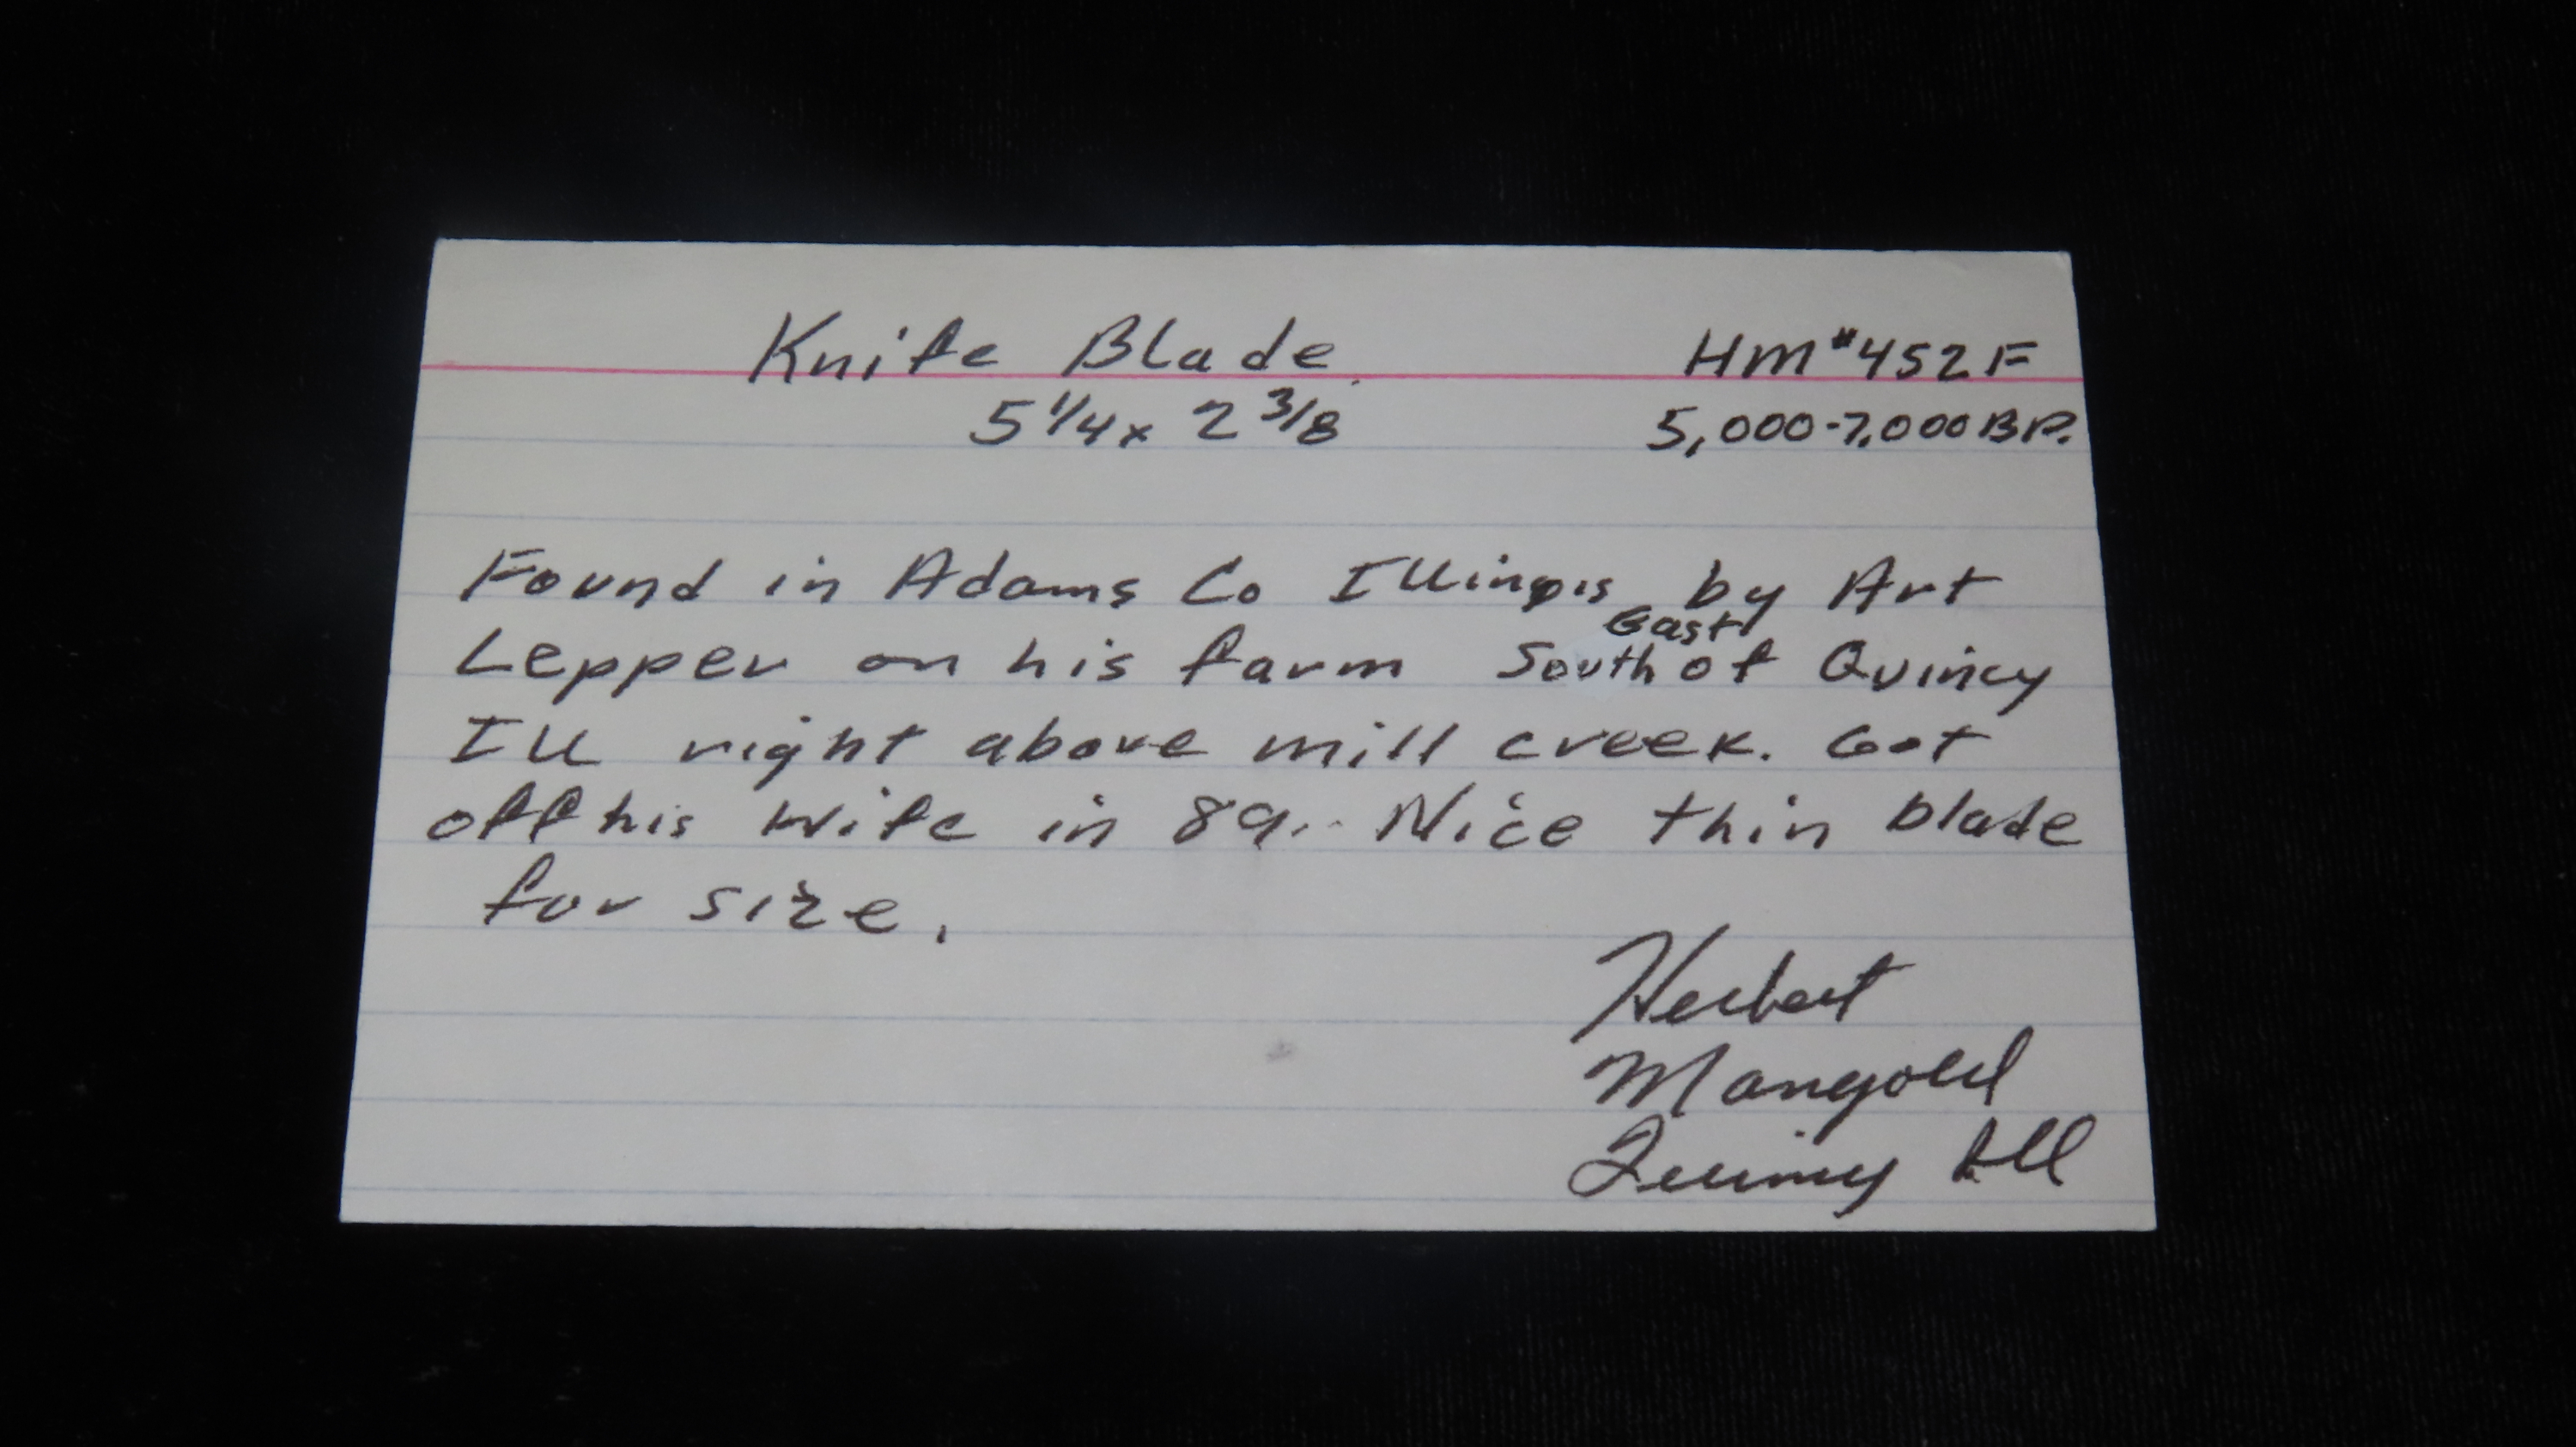 Knife Blade HM#452F
5 1/4 x 2 3/8 5,000-7,000 BP.
Found in Adams Co Illinois by Art
East
Lepper on his farm South of Quincy
Ill right above mill creek. Got
off his wife in 89. Nice thin blade
for size.
Herbert
Mangold
Quincy Ill